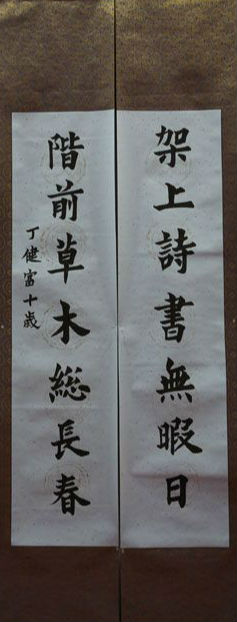 架上詩書無暇日
階前草木総長春
丁健富十歲